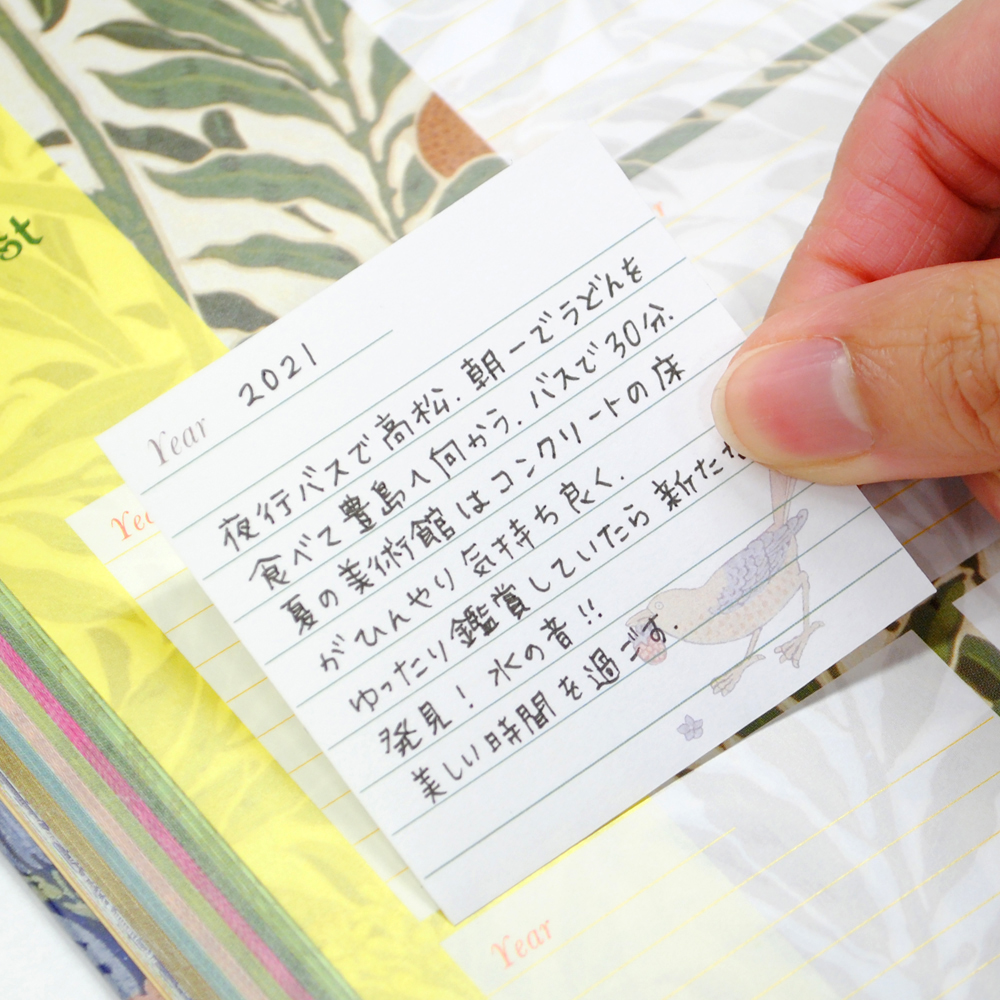 st
Year 2021
夜行バスで高松. 朝一でうどんを
食べて豊島へ向かう. バスで30分.
夏の美術館はコンクリートの床
がひんやり気持ち良く.
ゆったり鑑賞していたら新た
発見! 水の音!!
美しい時間を過ごす
Year
Year